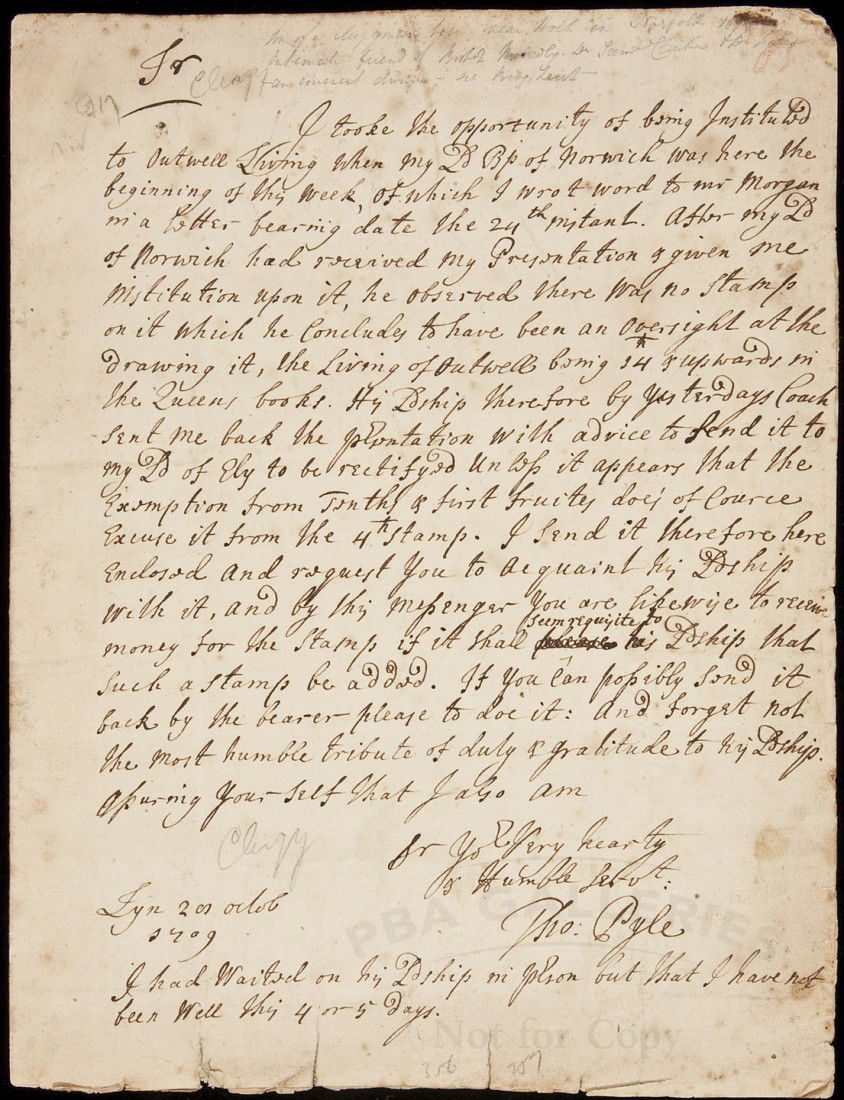 Sr
Clergy
I tooke the opportunity of being Instituted
to Outwell Living when my Ld Bp of Norwich was here the
beginning of this week, of which I wrot word to mr Morgan
in a letter bearing date the 24th instant. After my Ld
of Norwich had received my Presentation & given me
institution upon it, he observed there was no stamp
on it which he Concludes to have been an oversight at the
drawing it, the Living of Outwell being 14 & upwards in
the Queens books. His Ldship therefore by yesterdays Coach
sent me back the prsentation with advice to send it to
my Ld of Ely to be rectifyed Unless it appears that the
Exemption from Tenths & first fruites does of Cource
Excuse it from the 4th stamp. I send it therefore here
Enclosed and request You to acquaint his Ldship
with it, and by this messenger You are likewise to receive
seem requisite to
money for the stamp if it shall please his Ldship that
such a stamp be added. If you Can possibly send it
back by the bearer please to doe it: and forget not
the most humble tribute of duty & gratitude to his Ldship.
assuring Your self that I also am
Clergy
Sr Yor Very hearty
& Humble servt:
Lyn 29 octob
1709
Tho: Pyle
I had Waited on his Ldship in prson but that I have not
been Well this 4 or 5 days.
PBA GALLERIES
Not for Copy
356 357